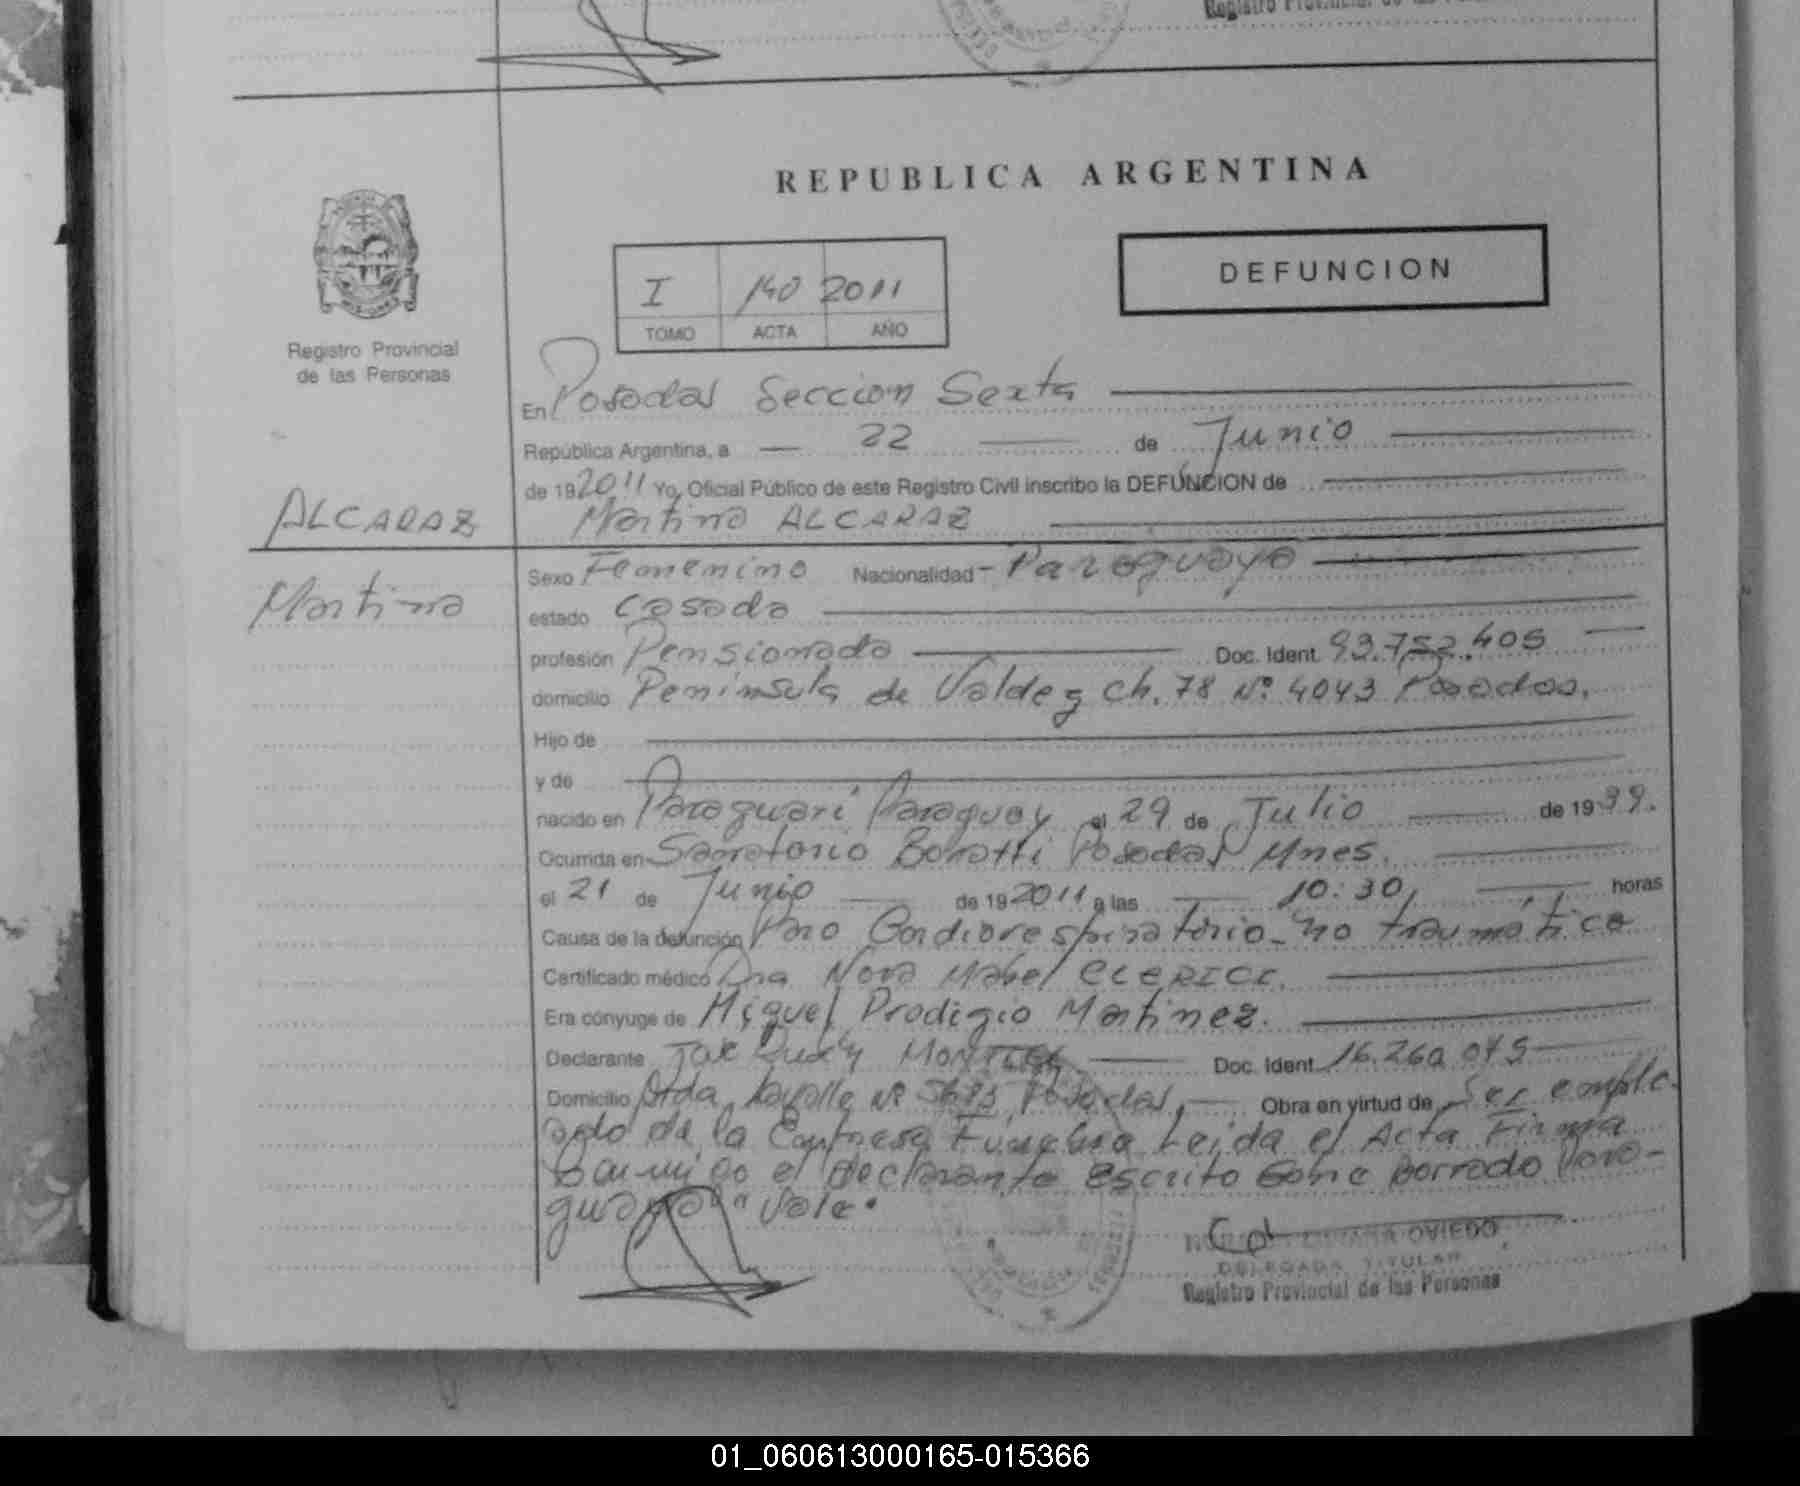 Registro Provincial de las Personas
REPUBLICA ARGENTINA
DEFUNCION
I 140 2011
TOMO ACTA AÑO
Registro Provincial
de las Personas
En Posadas Seccion Sexta
República Argentina, a 22 de Junio
de 19 2011 Yo, Oficial Público de este Registro Civil inscribo la DEFUNCION de
ALCARAZ
Martina ALCARAZ
Sexo Femenino Nacionalidad Paraguaya
Martina
estado Casada
profesión Pensionada Doc. Ident. 93.752.405
domicilio Peninsula de Valdez Ch. 78 Nº 4043 Posadas.
Hijo de
y de
nacido en Paraguarí Paraguay el 29 de Julio de 19 39.
Ocurrida en Sanatorio Boratti Posadas Mnes.
el 21 de Junio de 19 2011 a las 10:30, horas
Causa de la defunción Paro Cardiorespiratorio no traumático
Certificado médico Dra Nora Mabel CLERICI.
Era cónyuge de Miguel Prodigio Martinez.
Declarante MONTIEL Doc. Ident. 16.260.075
Domicilio Avda Nº Posadas, Obra en virtud de Ser emple-
ado de la Empresa Funebre Leida el Acta Firma
Conmigo el declarante Escrito sobre borrado Para-
guaya" Vale.
OVIEDO
DELEGADA TITULAR
Registro Provincial de las Personas
01_060613000165-015366